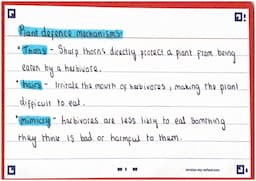 Plant defence mechanisms:
• Thorns - Sharp thorns directly protect a plant from being
eaten by a herbivore.
• hairs - Irritate the mouth of herbivores, making the plant
difficult to eat.
• mimicry - herbivores are less likely to eat something
they think is bad or harmful to them.